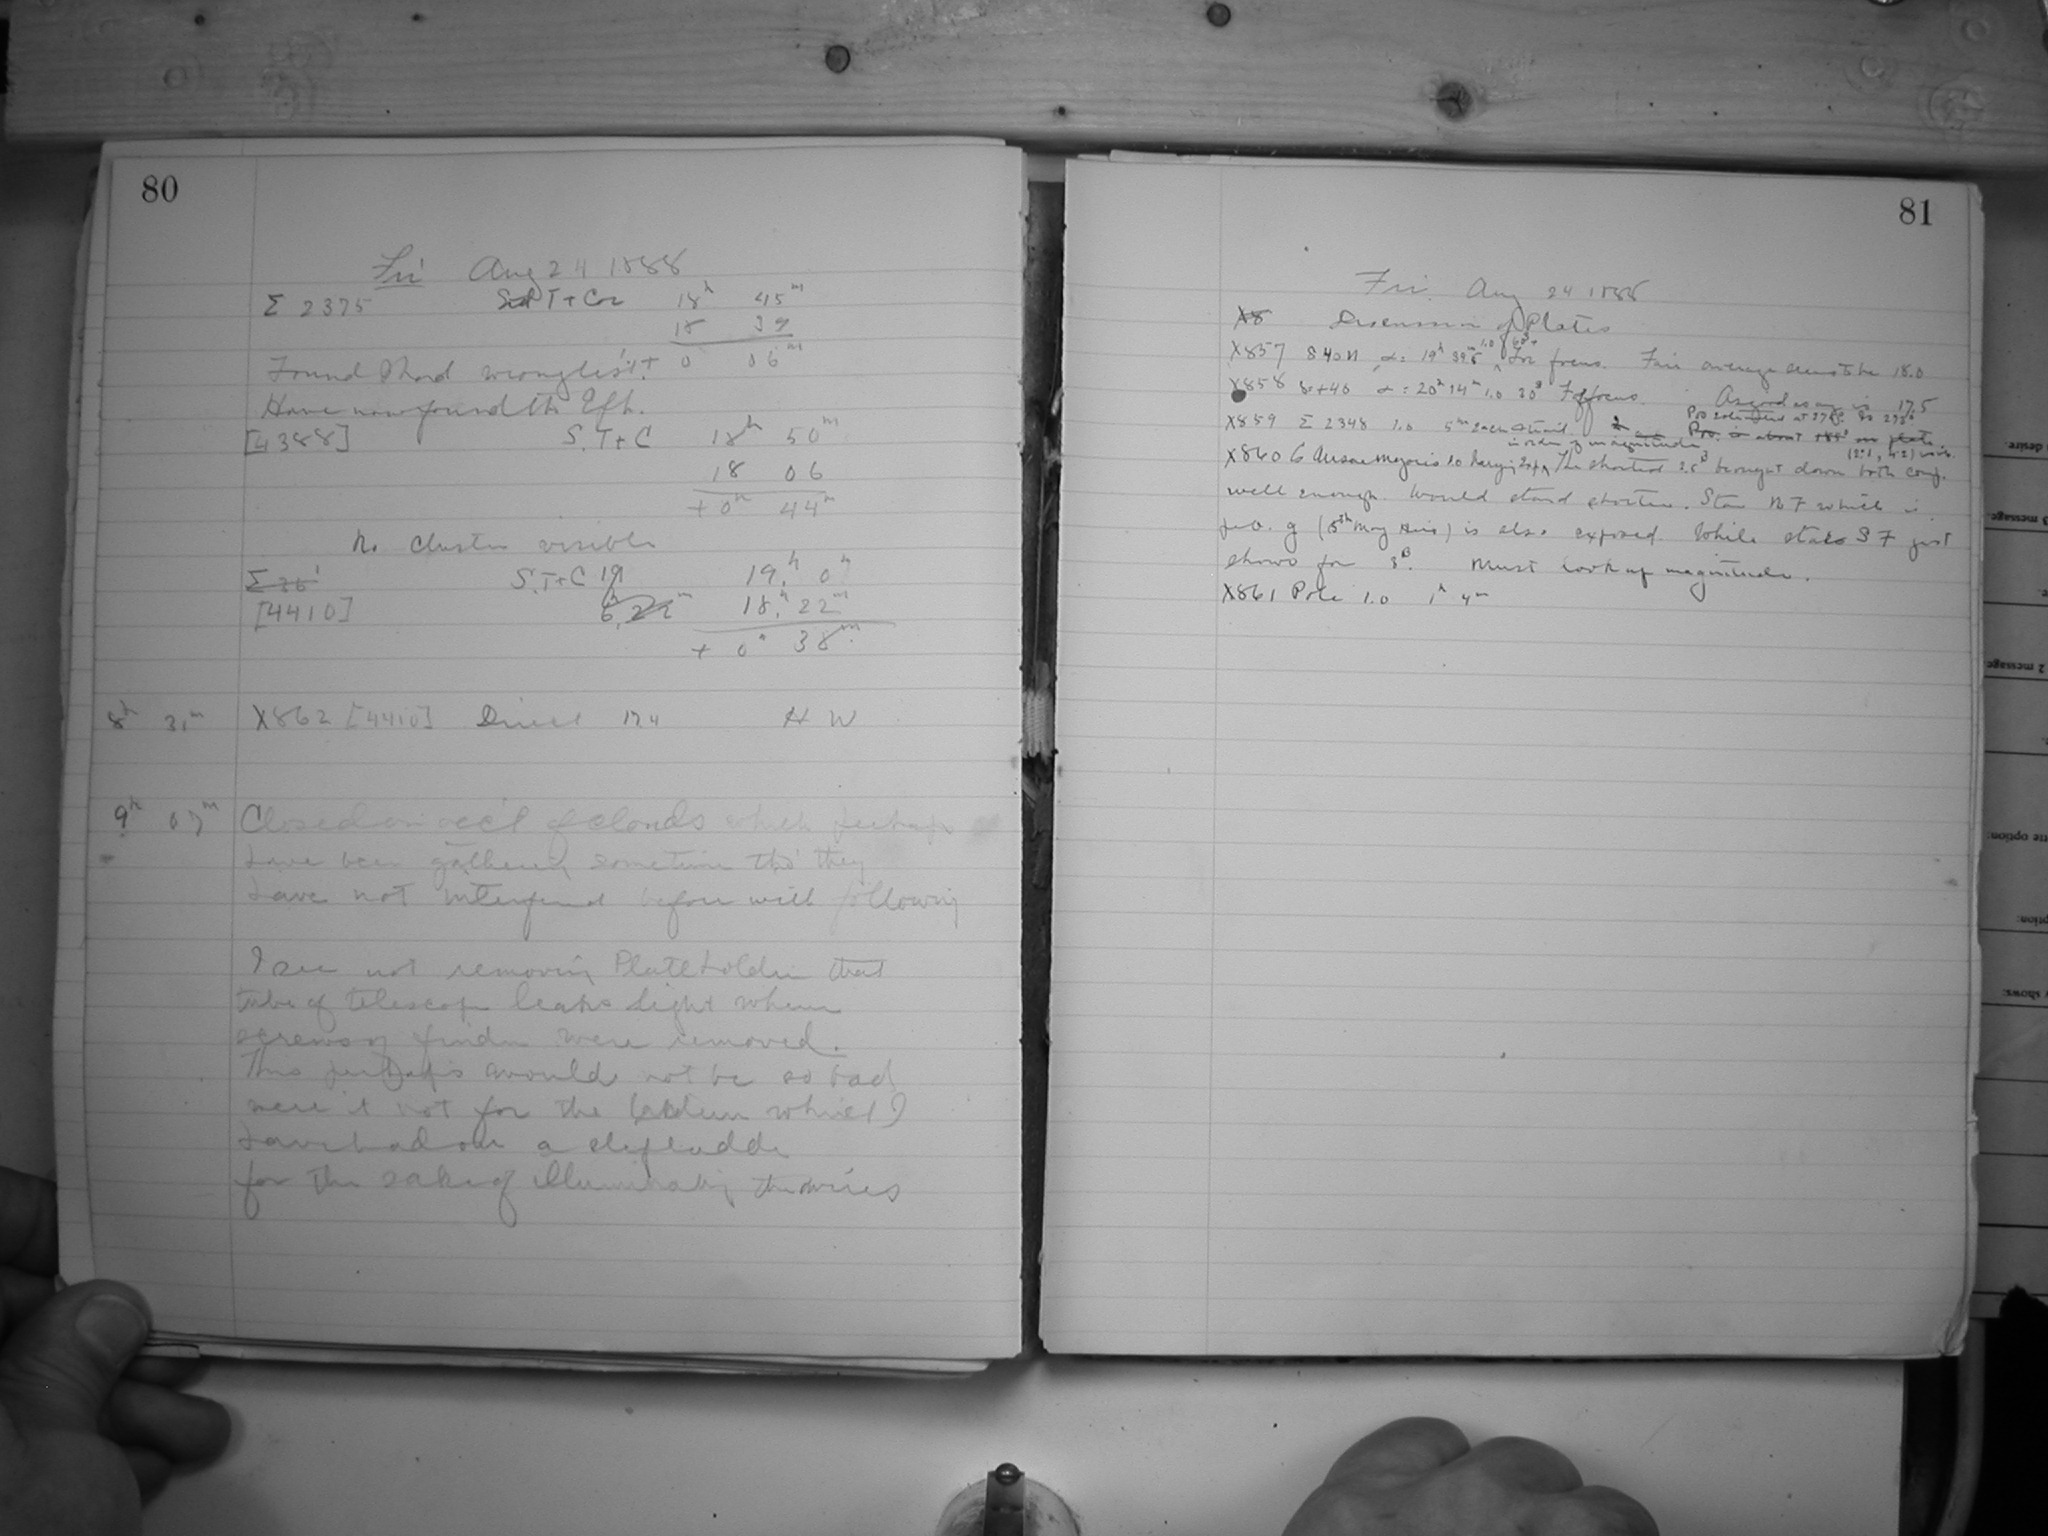 80
Fri Aug 24 1888
Σ 2375 Sid T + Cor 18h 45m
18 39
0 06m
Found I had wrong list.
Have now found the Eph.
[4388] S. T + C 18h 50m
18 06
+ 0h 44m
No cluster visible
S. T + C 19 19h 0m
[4410] 18h 22m
+ 0h 38m
8h 31m X862 [4410] Direct 17.4 H W
9h 07m Closed on acc't of clouds which perhaps
have been gathering sometime tho' they
have not interfered before with following
I see not removing Plateholder that
tube of telescope leaks light where
screws of finder were removed.
This perhaps would not be so bad
were it not for the lantern which I
have had on a stepladder
for the sake of illuminating the wires
81
Fri. Aug 24 1888
X8 Discussion of Plates
X857 840N α = 19h 39m.5 1.0 60s For focus. Fair average seems to be 18.0
X858 δ + 40 α = 20h 14m 1.0 30s For focus. As good as any is 17.5
X859 Σ 2348 1.0 5m each & trail
in order of magnitude
X860 G Ursae Majoris 1.0 The shortest 2.5s brought down both comp.
well enough. Would stand shorter. Star N F which is
(5th Mag Heis) is also exposed. While star S F just
shows for 3s. Must look up magnitude.
X861 Pole 1.0 1h 4m